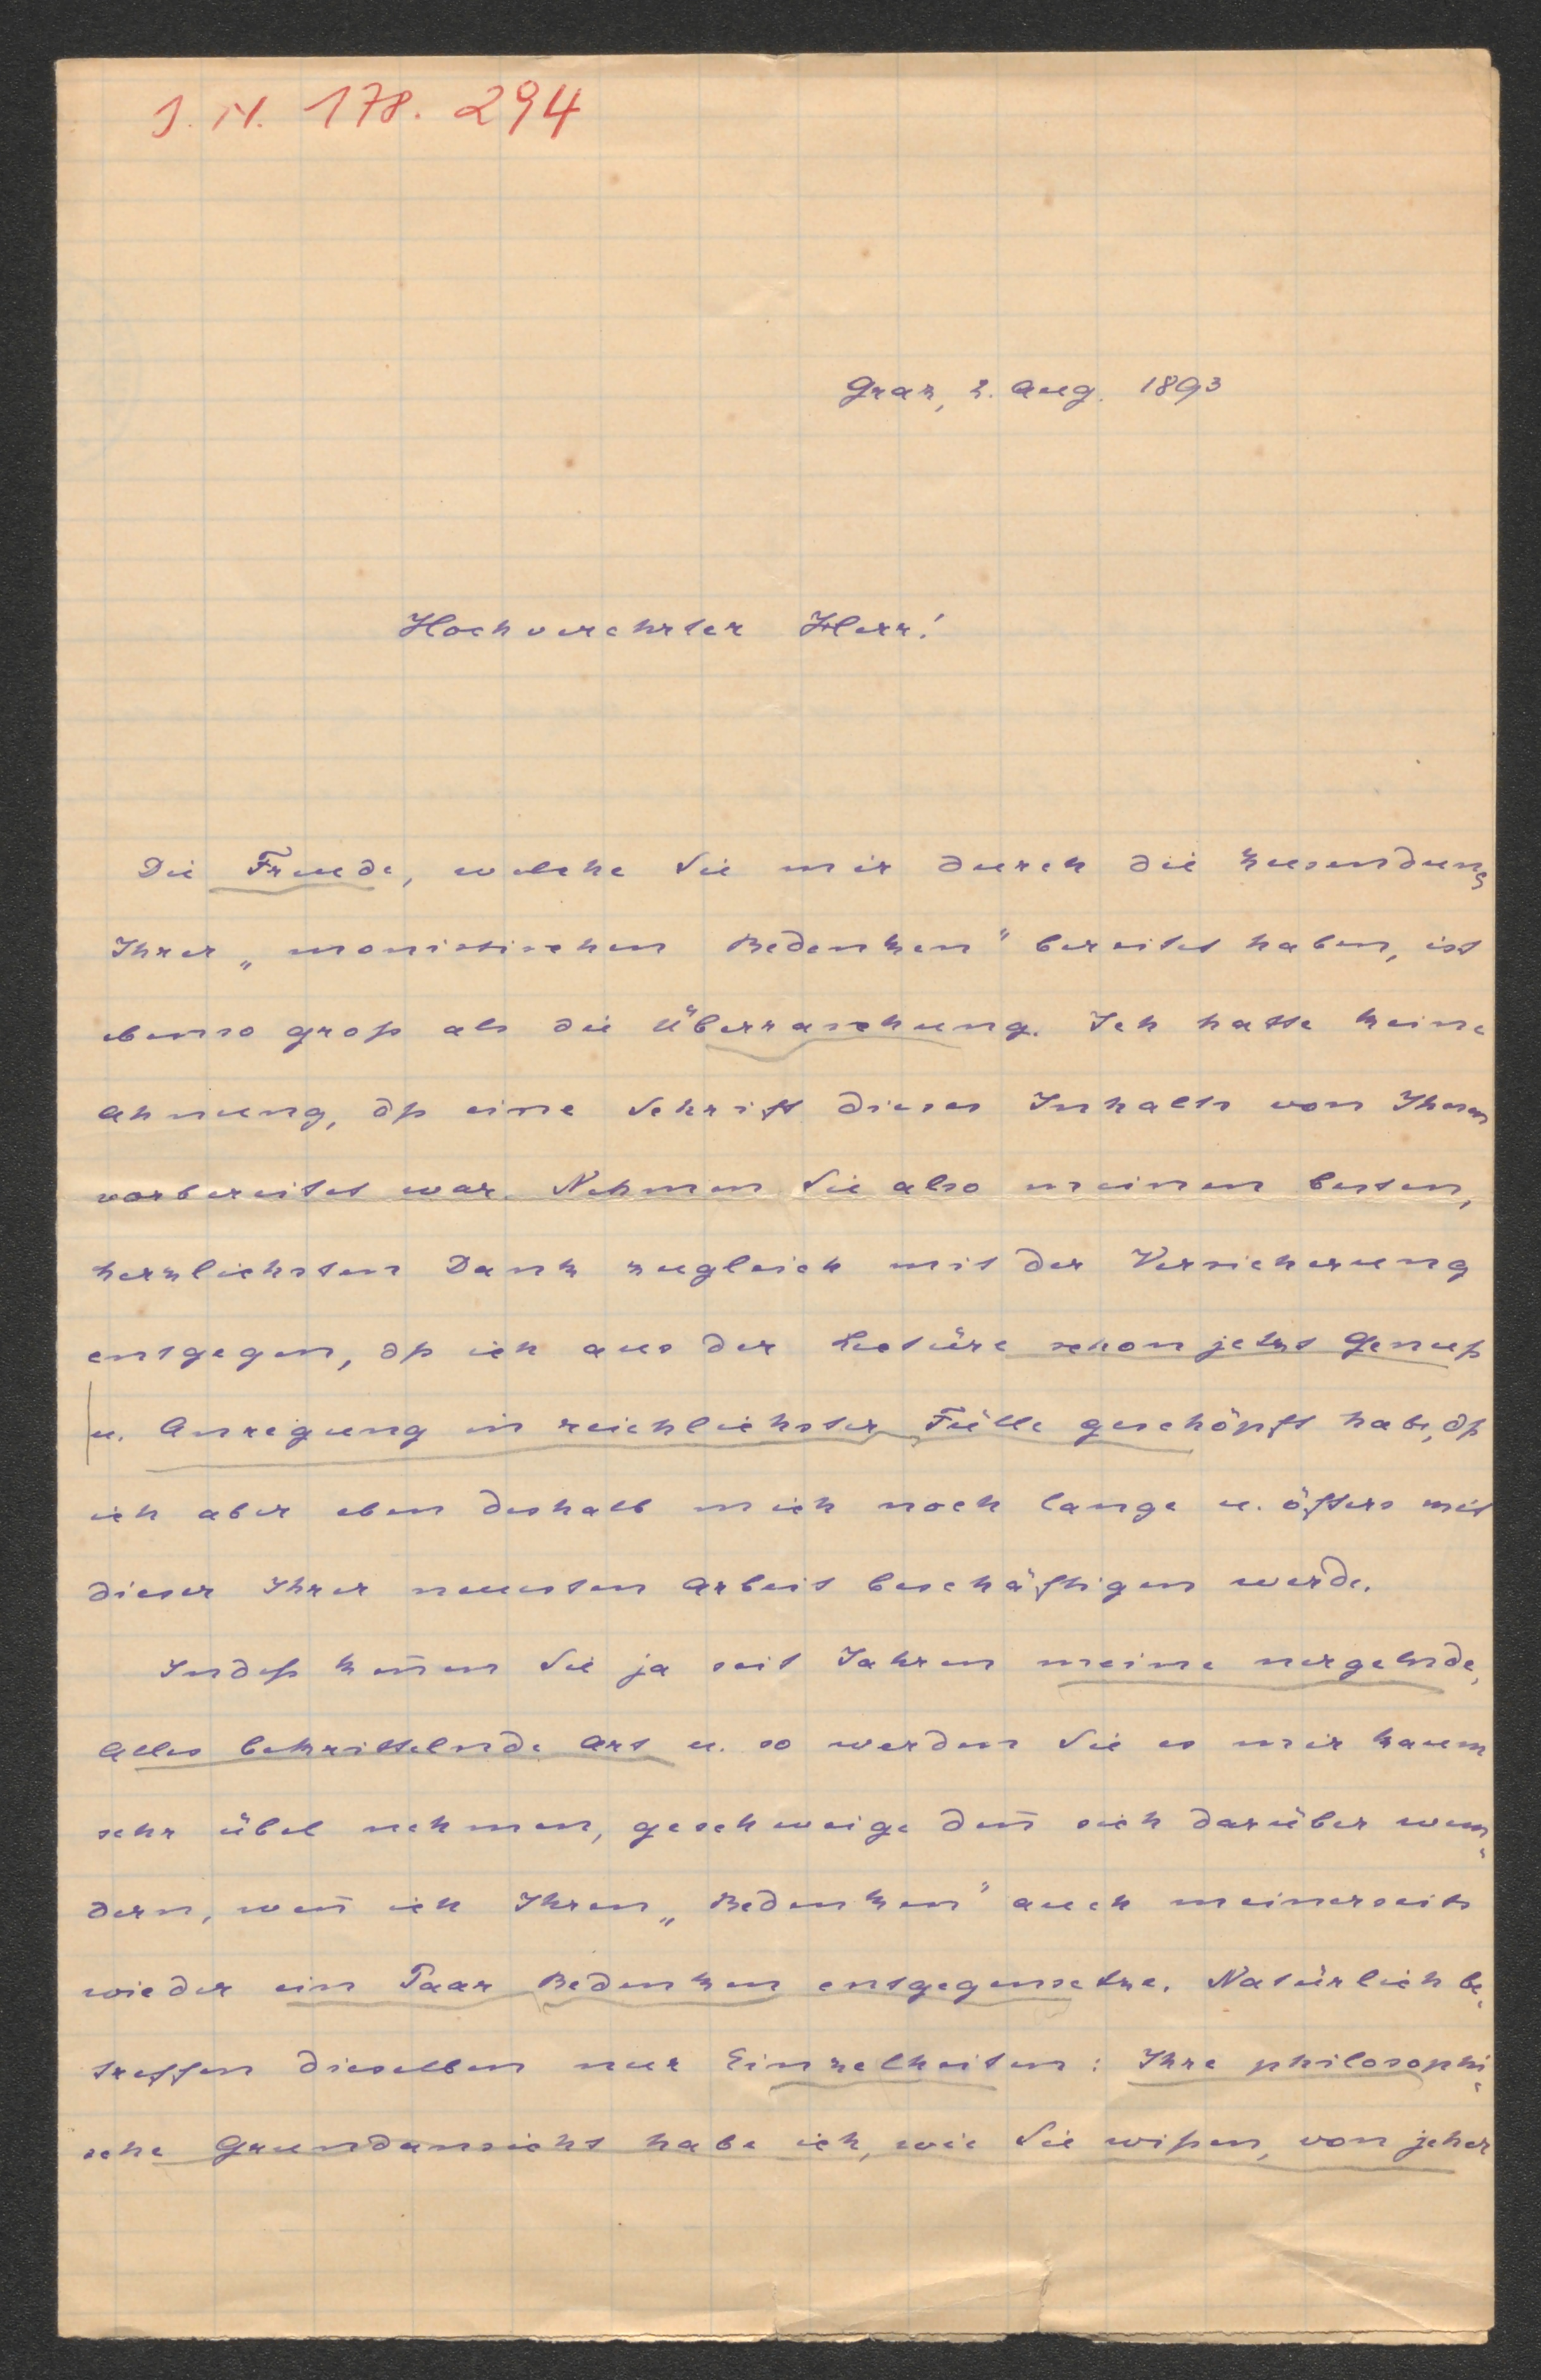 J. N. 178. 294
Graz, 2. Aug. 1893
Hochverehrter Herr!
Die Freude, welche Sie mir durch die Zusendung
Ihrer „monistischen Bedenken" bereitet haben, ist
ebenso groß als die Überraschung. Ich hatte keine
Ahnung, dß eine Schrift dieses Inhalts von Ihnen
vorbereitet war. Nehmen Sie also meinen besten,
herzlichsten Dank zugleich mit der Versicherung
entgegen, dß ich aus der Lectüre schon jetzt Genuß
u. Anregung in reichlichster Fülle geschöpft habe, dß
ich aber eben deshalb mich noch lange u. öfters mit
dieser Ihrer neuesten Arbeit beschäftigen werde.
Indeß keñen Sie ja seit Jahren meine nergelnde,
Alles bekrittelnde Art u. so werden Sie es mir kaum
sehr übel nehmen, geschweige deñ sich darüber wun-
dern, weñ ich Ihren „Bedenken" auch meinerseits
wieder ein Paar Bedenken entgegensetze. Natürlich be-
treffen dieselben nur Einzelheiten: Ihre philosophi-
sche Grundansicht habe ich, wie Sie wißen, von jeher